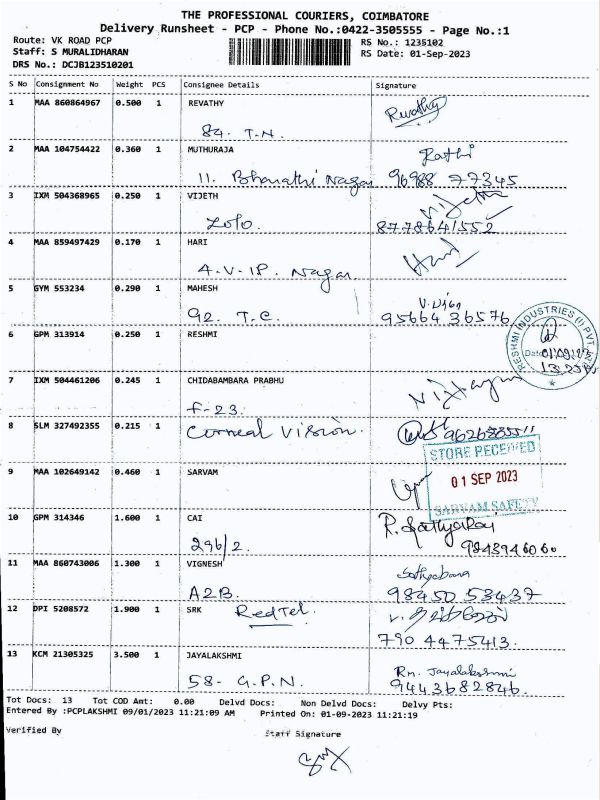 THE PROFESSIONAL COURIERS, COIMBATORE
Delivery Runsheet - PCP - Phone No.:0422-3505555 - Page No.:1
Route: VK ROAD PCP
RS No.: 1235102
Staff: S MURALIDHARAN
RS Date: 01-Sep-2023
DRS No.: DCJB123510201
S No Consignment No Weight PCS Consignee Details Signature
1 MAA 860864967 0.500 1 REVATHY Revathy
84. T.N.
2 MAA 104754422 0.360 1 MUTHURAJA Rathi
11. Bharathi Nagar 96988 77345
3 IXM 504368965 0.250 1 VIJETH Vijeth
8778641552
4 MAA 859497429 0.170 1 HARI Hari
4.V-IP. Nagar
5 GYM 553234 0.290 1 MAHESH
92. T.C. 95664 36576
6 GPM 313914 0.250 1 RESHMI
RESHMI INDUSTRIES (I) PVT. LTD.
Date
7 IXM 504461206 0.245 1 CHIDABAMBARA PRABHU
F-23.
8 SLM 327492355 0.215 1 Corneal Vision.
STORE RECEIVED
01 SEP 2023
SARVAM SAFETY
9 MAA 102649142 0.460 1 SARVAM
10 GPM 314346 1.600 1 CAI R. Sathyaraj
296/2. 9843946060
11 MAA 860743006 1.300 1 VIGNESH
A2B. 98450 53437
12 DPI 5208572 1.900 1 SRK RedTel.
790 4475413.
13 KCM 21305325 3.500 1 JAYALAKSHMI Rn. Jayalakshmi
58- G.P.N. 9443682846.
Tot Docs: 13 Tot COD Amt: 0.00 Delvd Docs: Non Delvd Docs: Delvy Pts:
Entered By :PCPLAKSHMI 09/01/2023 11:21:09 AM Printed On: 01-09-2023 11:21:19
Verified By Staff Signature